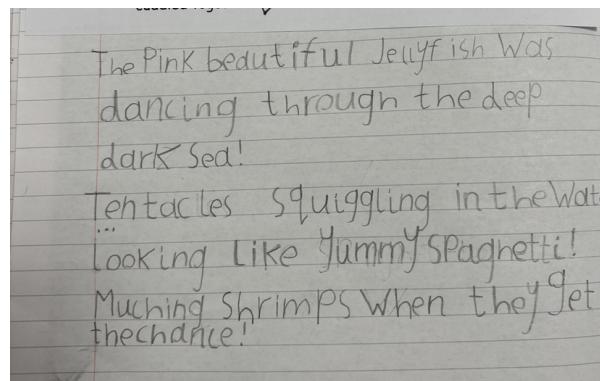 The Pink beautiful Jellyfish Was
dancing through the deep
dark Sea!
Tentacles squiggling in the Wat
...
Looking Like yummy spaghetti!
Muching Shrimps when they get
the chance!